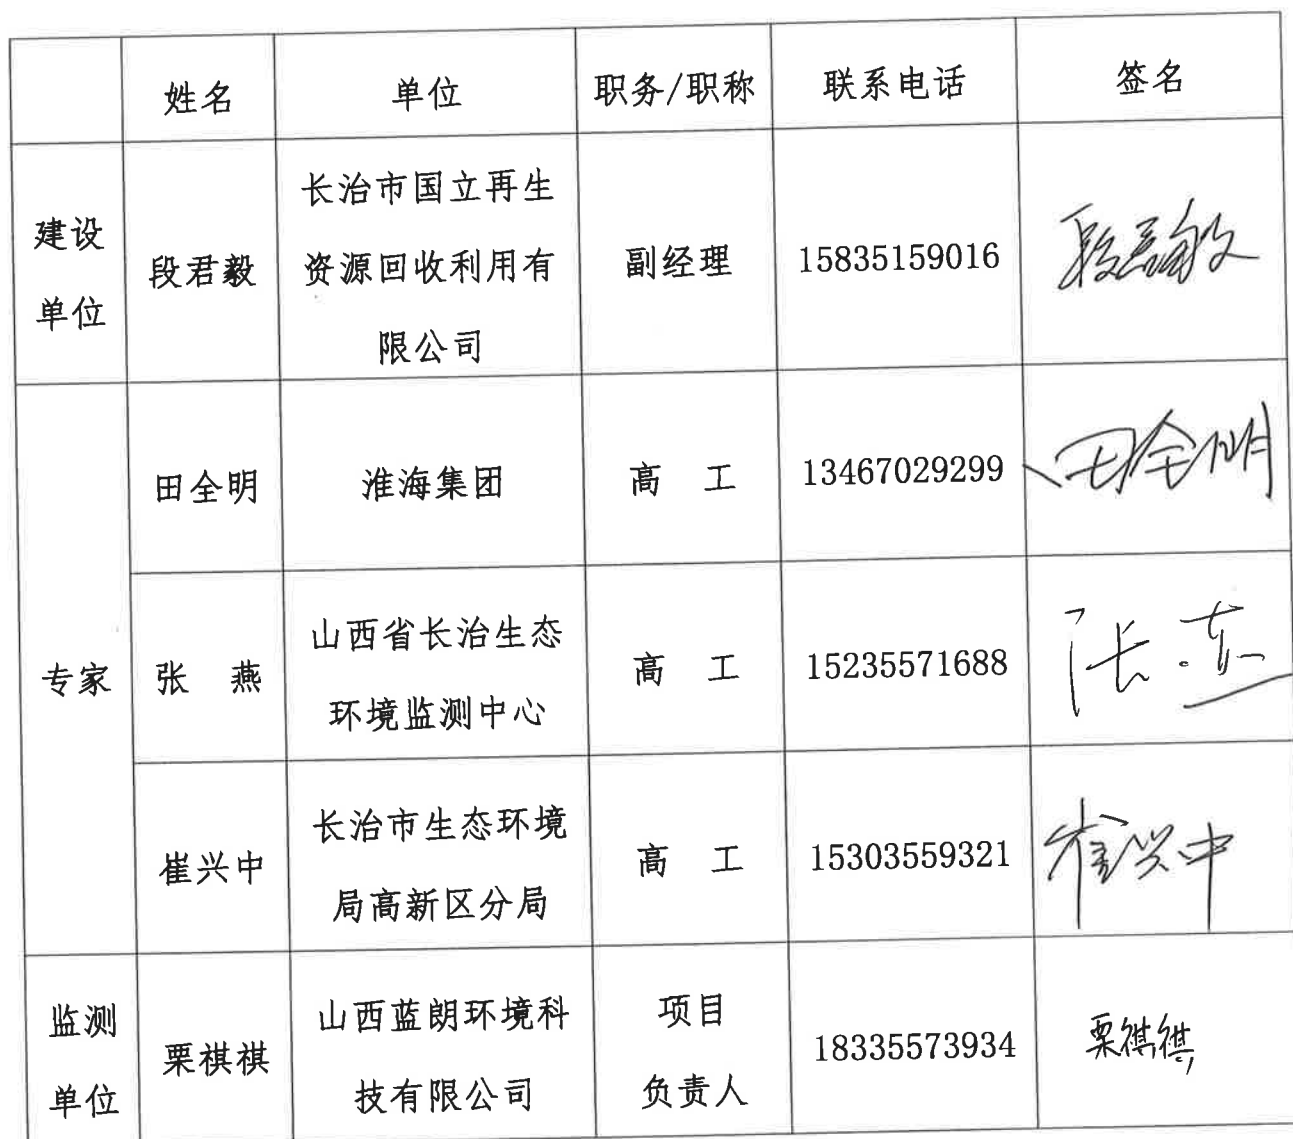 姓名 单位 职务/职称 联系电话 签名
建设
单位
段君毅
长治市国立再生
资源回收利用有
限公司
副经理
15835159016
段君毅
专家
田全明
淮海集团
高 工
13467029299
田全明
张 燕
山西省长治生态
环境监测中心
高 工
15235571688
张燕
崔兴中
长治市生态环境
局高新区分局
高 工
15303559321
崔兴中
监测
单位
栗祺祺
山西蓝朗环境科
技有限公司
项目
负责人
18335573934
栗祺祺